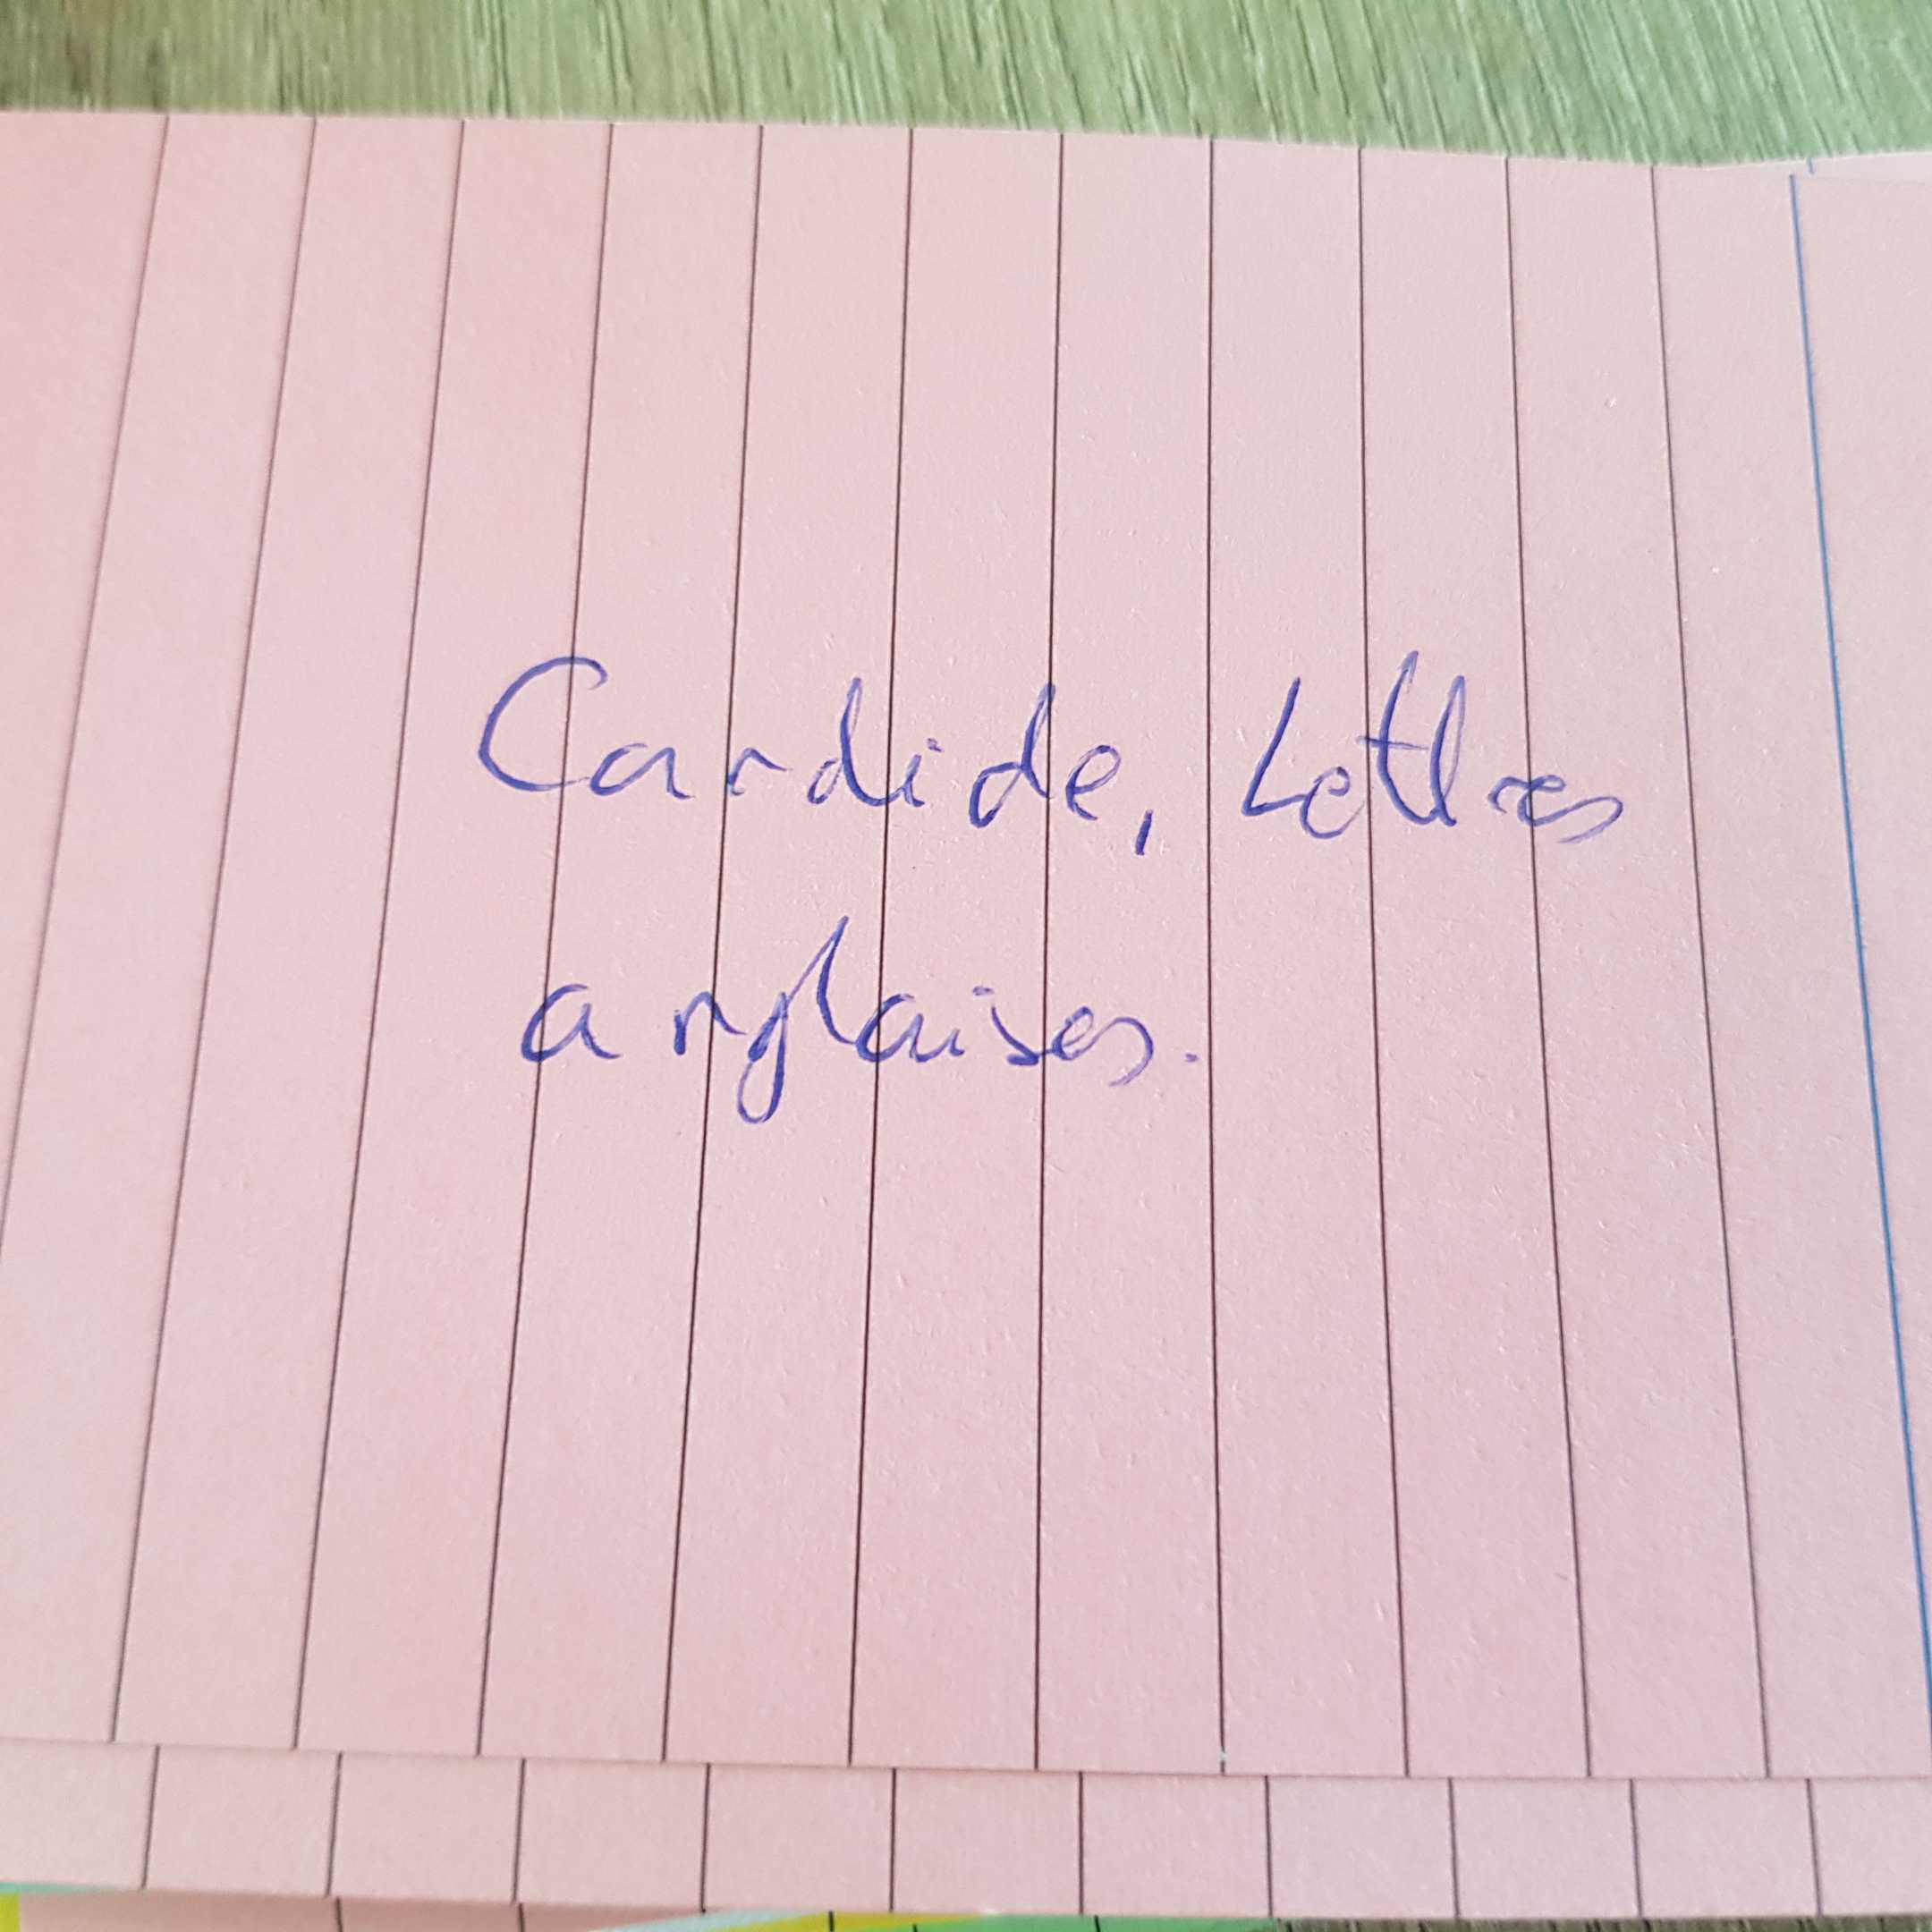 Candide, Lettres
anglaises.